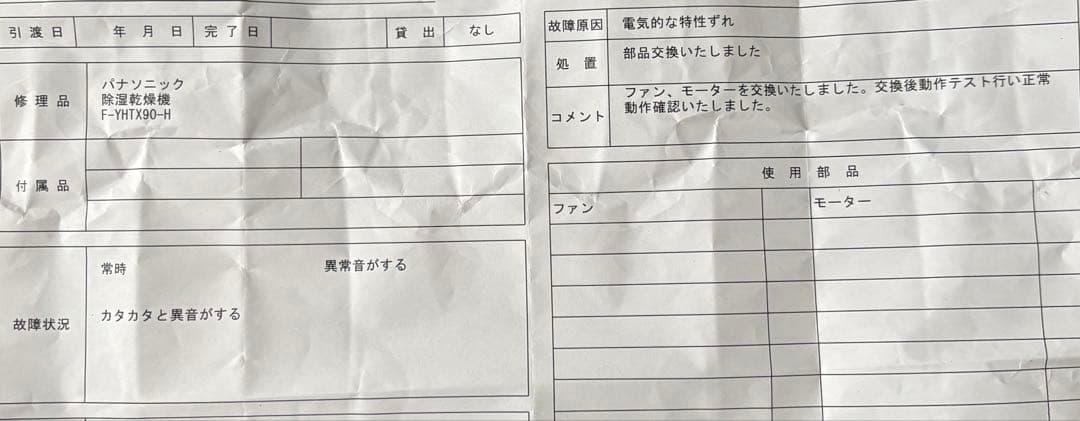 引渡日 年 月 日 完了日 貸出 なし
修理品
パナソニック
除湿乾燥機
F-YHTX90-H
付属品
故障状況
常時 異常音がする
カタカタと異音がする
故障原因 電気的な特性ずれ
処置 部品交換いたしました
コメント
ファン、モーターを交換いたしました。交換後動作テスト行い正常
動作確認いたしました。
使用部品
ファン モーター